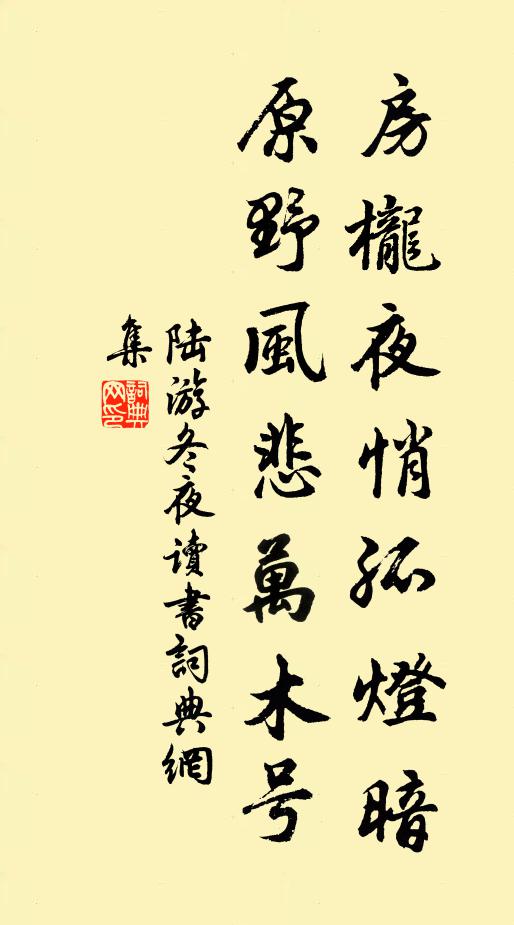 房櫳夜悄孤燈暗
原野風悲萬木号
陸游冬夜讀書詞典網
集
詞典
网印